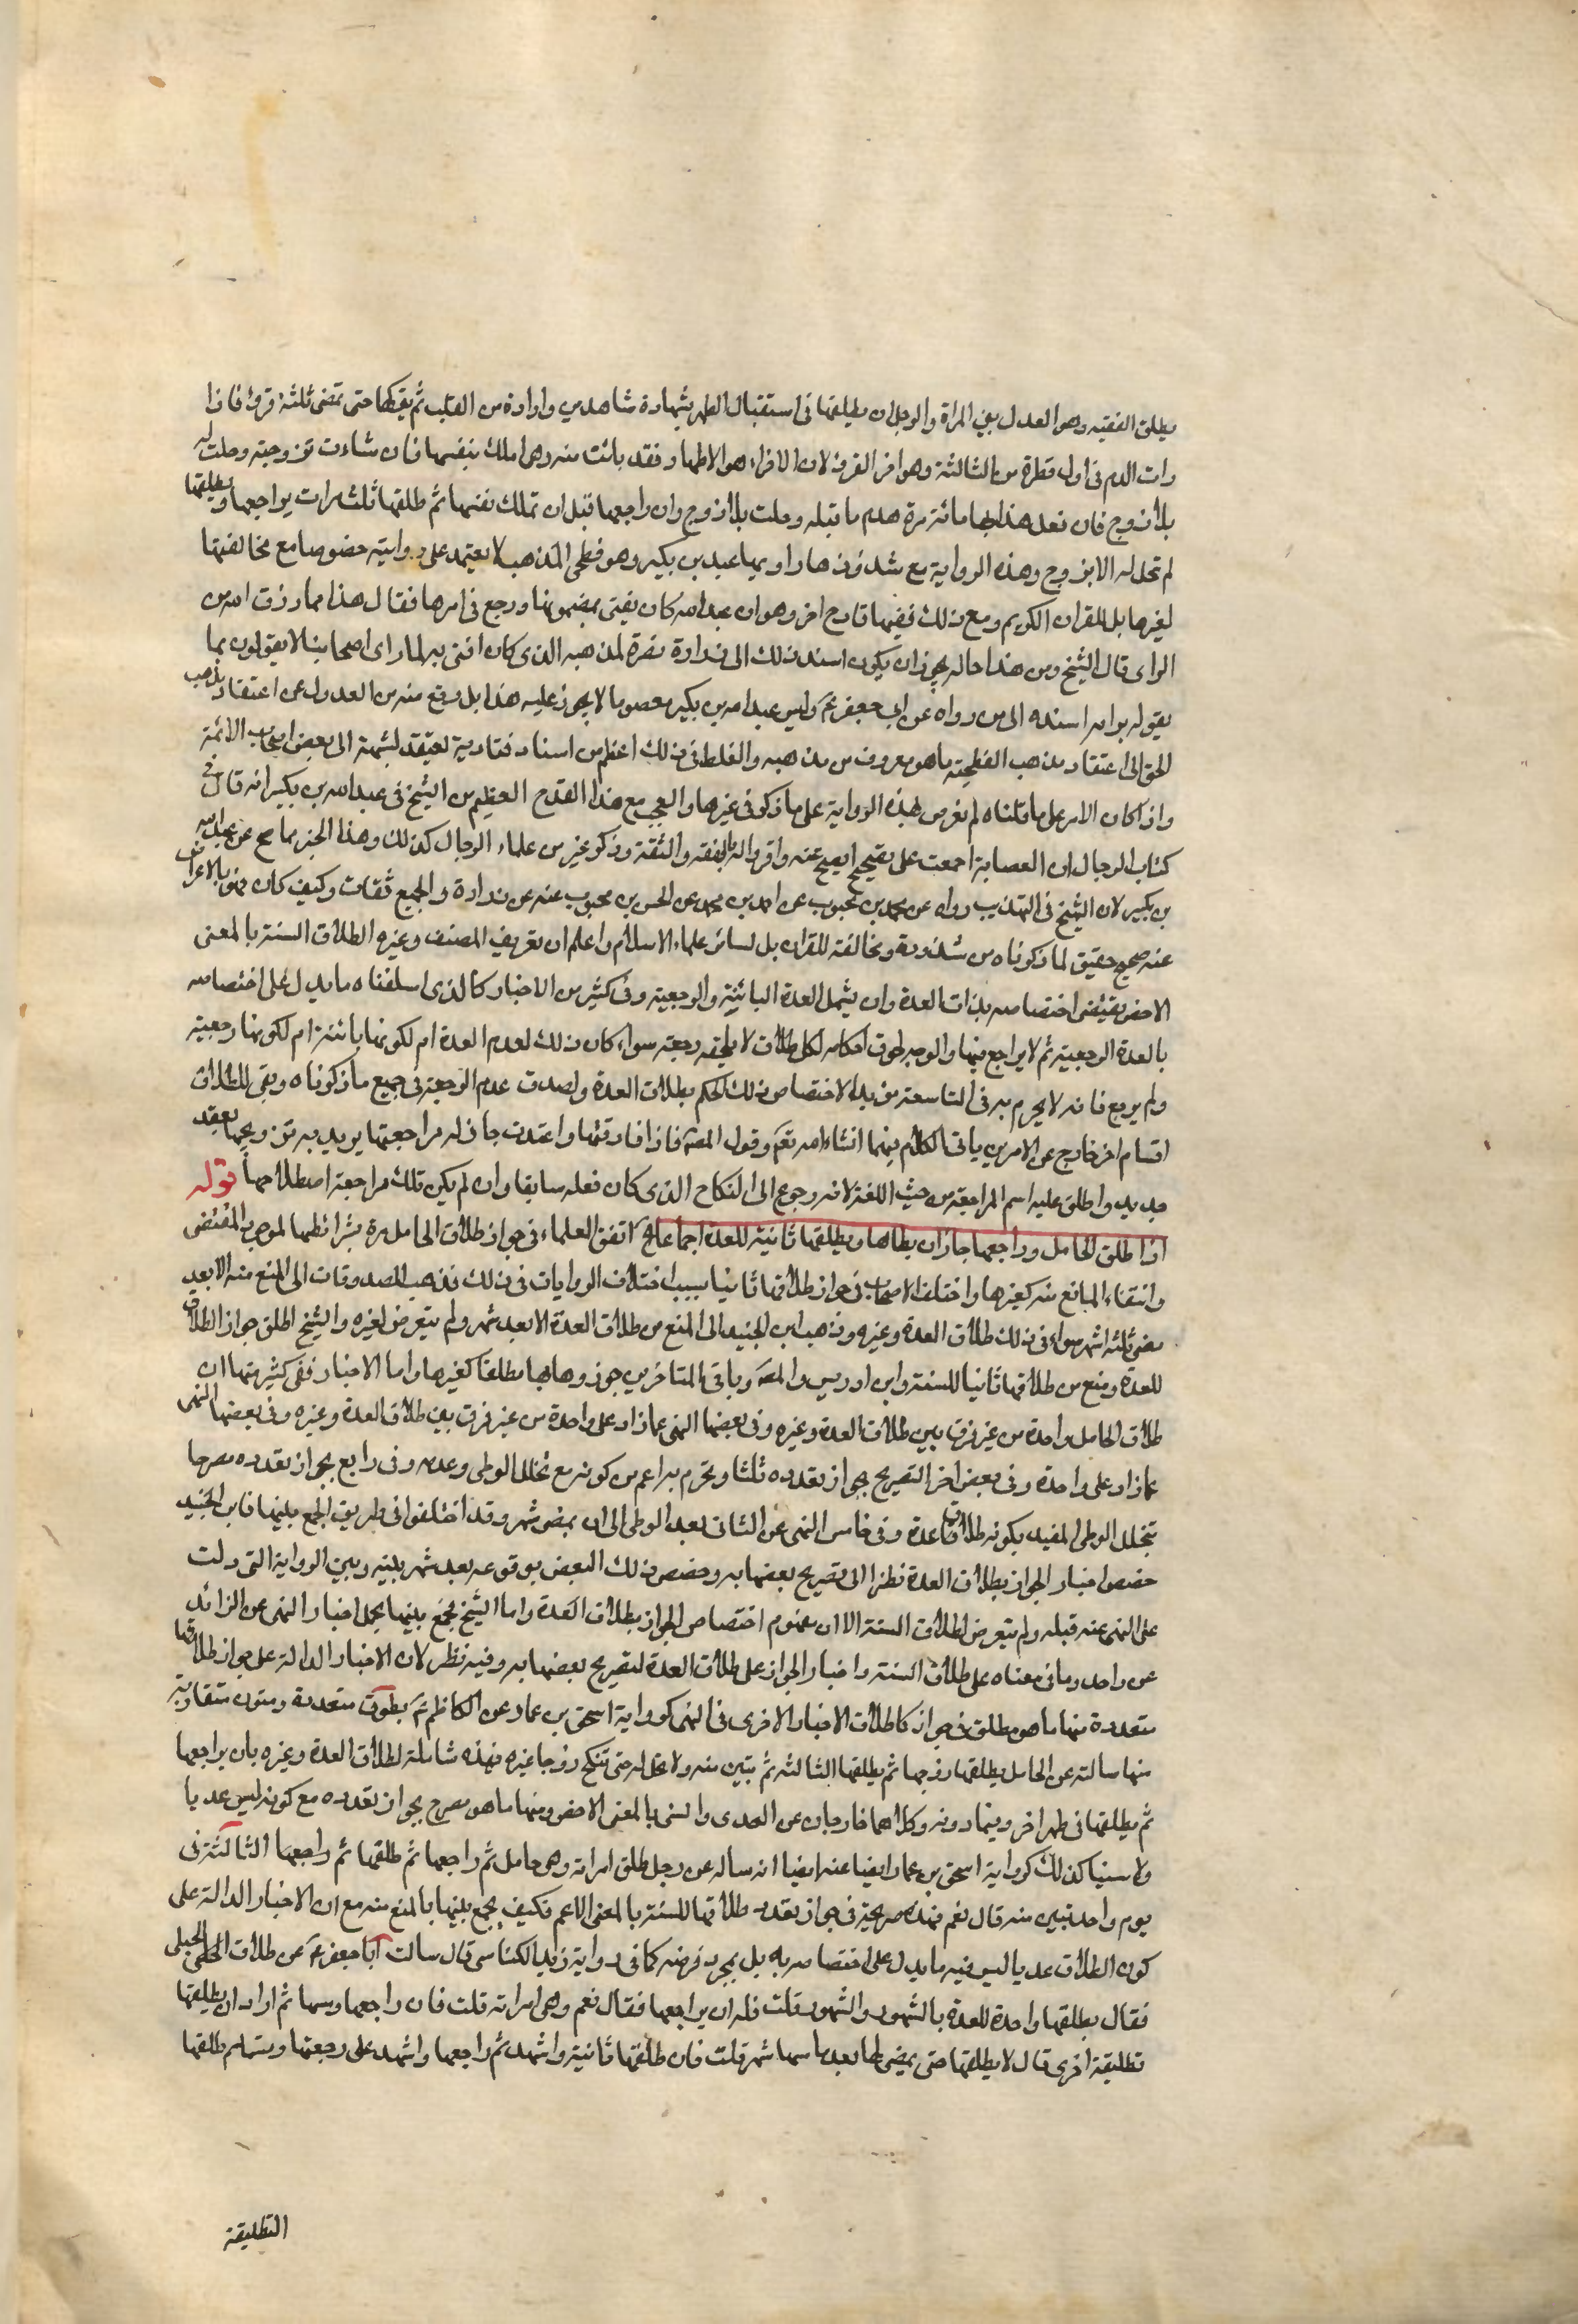 يطلق الفقيه وهو العدل بين المراة والرجل ان يطلقها فى استقبال الطهر بشهادة شاهدين وارادة من القلب ثم يتركها حتى تمضى ثلثة قروء فاذا
رات الدم فى اول قطرة من الثالثة وهو اخر القرء لان الاقراء هو الاطهار فقد بانت منه وهى املك بنفسها فان شاءت تزوجته وحلت له
بلا زوج فان فعل هذا بها مائة مرة هدم ما قبله وحلت بلا زوج وان راجعها قبل ان تملك نفسها ثم طلقها ثلث مرات يراجعها ويطلقها
لم تحل له الا بزوج وهذه الرواية مع شذوذها راويها عبد بن بكير وهو فطحى المذهب لا يعتمد على روايته خصوصا مع مخالفتها
لغيرها بل للقران الكريم ومع ذلك ففيها قادح اخر وهو ان عبد الله كان يفتى بمضمونها ورجع فى امرها فقال هذا مما رزق الله من
الراى قال الشيخ ومن هذا حاله يجوز ان يكون اسند ذلك الى زرارة نصرة لمذهبه الذى كان افتى به لما راى اصحابنا لا يقولون بما
يقوله برايه اسنده الى من رواه عن ابى جعفر ع وليس عبد الله بن بكير معصوما لا يجوز عليه هذا بل وقع منه من العدول عن اعتقاد مذهب
الحق الى اعتقاد مذهب الفطحية ما هو معروف من مذهبه والغلط فى ذلك اعظم من اسناد فتاوية لعتقد لشبهة الى بعض اصحاب الائمة
واذا كان الامر على ما قلناه لم تعرض لهذه الرواية على ما ذكر فى غيرها والعجب مع هذا القدح العظيم من الشيخ فى عبد الله بن بكير انه قال فى
كتاب الرجال ان العصابة اجمعت على تصحيح ما يصح عنه واقروا له بالفقه والثقة وذكر غيره من علماء الرجال كذلك وهذا الخبر مما صح عن عبد الله
بن بكير لان الشيخ فى التهذيب رواه عن محمد بن محبوب عن احمد بن محمد عن الحسن بن محبوب عنه عن زرارة والجميع ثقات وكيف كان فهو بالاعراض
عنه صحيح حقيق لما ذكرناه من شذوذه ومخالفته للقران بل لسائر علماء الاسلام واعلم ان تعريف المصنف وغيره الطلاق السنة بالمعنى
الاخص يقتضى اختصاصه بذات العدة وان يشمل العدة البائنة والرجعية وفى كثير من الاخبار كالذى اسلفناه ما يدل على اختصاصه
بالعدة الرجعية ثم لا يراجع فيها والوجه لحوق احكامه لكل طلاق لا يلحقه رجعة سواء كان ذلك لعدم العدة ام لكونها بائنة ام لكونها رجعية
ولم يرجع فانه لا يحرم به فى التاسعة مؤبدا لاختصاص ذلك الحكم بطلاق العدة ولصدق عدم الرجعة فى جميع ما ذكرناه وبقى للطلاق
اقسام اخر خارج عن الامرين ياتى الكلام فيها انشاء الله تعم وقول المصه فاذا فارقها واعتدت جاز له مراجعتها يريد به تزويجها بعقد
جديد واطلق عليه اسم المراجعة من حيث اللغة لانه رجوع الى النكاح الذى كان فعله سابقا وان لم يكن تلك مراجعة اصطلاحها قوله
اذا طلق الحامل وراجعها جاز ان يطاها ويطلقها ثانية للعدة اجماعا الخ اتفق العلماء فى جواز طلاق الحامل مرة بشرائطها لموجب المقتضى
وانتفاء المانع منه كغيرها واختلف الاصحاب فى جواز طلاقها ثانيا بسبب اختلاف الروايات فى ذلك فذهب الصدوقان الى المنع منه الا بعد
مضى ثلثة اشهر سواء فى ذلك طلاق العدة وغيره وذهب ابن الجنيد الى المنع من طلاق العدة الا بعد شهر ولم يتعرض لغيره والشيخ اطلق جواز الطلاق
للعدة ومنع من طلاقها ثانيا للسنة وابن ادريس والمصه وباقى المتاخرين جوزوها بها مطلقا كغيرها واما الاخبار ففى كثير منها ان
طلاق الحامل واحدة من غير فرق بين طلاق العدة وغيره وفى بعضها النهى عما زاد على واحدة من غير فرق بين طلاق العدة وغيره وفى بعضها النهى
عما زاد على واحدة وفى بعض اخر التصريح بجواز تعدده ثلثا وتحرم به اعم من كونه مع تخلل الوطى وعدمه وفى رابع بجواز تعدده مصرحا
بتخلل الوطى المفيد بكونه طلاق عدة وفى خامس النهى عن الثانى بعد الوطى الى ان يمضى شهر وقد اختلفوا فى طريق الجمع بينها فابن الجنيد
خصص اخبار الجواز بطلاق العدة نظرا الى تصريح بعضها به وخصص ذلك البعض بوقوعه بعد شهر بينه وبين الرواية التى دلت
على النهى عنه قبله ولم يتعرض لطلاق السنة الا ان مفهوم اختصاص الجواز بطلاق العدة واما الشيخ فجمع بينها بحمل اخبار النهى عن الزائد
عن واحد وما فى معناه على طلاق السنة واخبار الجواز على طلاق العدة لتصريح بعضها به وفيه نظر لان الاخبار الدالة على جواز طلاقها
متعددة منها ما هو مطلق فى جواز كاطلاق الاخبار الاخرى فى النهى كرواية اسحق بن عمار عن الكاظم ع بطرق متعددة ومتون متقاربة
منها سالته عن الحامل يطلقها زوجها ثم يطلقها الثالثة ثم تبين منه ولا تحل له حتى تنكح زوجا غيره فهذه شاملة لطلاق العدة وغيره بان يراجعها
ثم يطلقها فى طهر اخر وبما دونه وكلاهما خارجان عن العدى والسنى بالمعنى الاخص ومنها ما هو مصرح بجواز تعدده مع كونه ليس عديا
ولا سنيا كذلك كرواية اسحق بن عمار ايضا عنه ايضا انه ساله عن رجل طلق امراته وهى حامل ثم راجعها ثم طلقها ثم راجعها الثالثة فى
يوم واحد تبين منه قال نعم فهذه صريحة فى جواز تعدد طلاقها للسنة بالمعنى الاعم فكيف يجمع بينها بالمنع منه مع ان الاخبار الدالة على
كون الطلاق عديا ليس فيه ما يدل على اختصاصه به بل بمجرد فرضه كما فى رواية يزيد الكناسى قال سالت ابا جعفر ع عن طلاق الحبلى
فقال يطلقها واحدة للعدة بالشهور والشهود قلت فله ان يراجعها فقال نعم وهى امراته قلت فان راجعها ومسها ثم اراد ان يطلقها
تطليقة اخرى قال لا يطلقها حتى يمضى لها بعد ما مسها شهر قلت فان طلقها ثانية واشهد ثم راجعها واشهد على رجعتها ومسها ثم طلقها
التطليقة